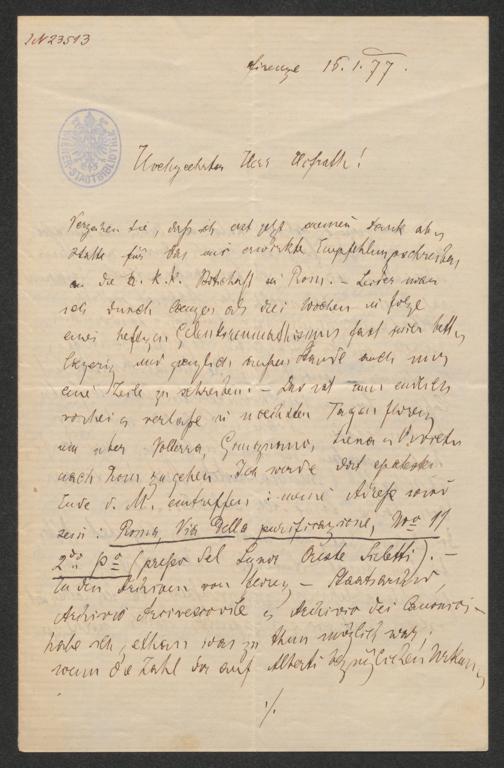 IN 23513
Firenze 15. 1. 77.
WIENER STADTBIBLIOTHEK
Hochgeehrter Herr Hofrath!
Verzeihen Sie, daß ich erst jetzt meinen Dank ab
statte für das mir erwirkte Empfehlungsschreiben
an die k. k. Botschaft in Rom. – Leider war
ich durch länger als drei Wochen in folge
eines heftigen Gelenksreumathismus fast
lägerig und gänzlich außer Stande auch nur
eine Zeile zu schreiben. – Das ist nun endlich
vorbei verlaße in nächsten Tagen Florenz
um über Volterra, Siena Orvieto
nach Rom zu gehen. Ich werde dort spätestens
Ende d. M. eintreffen: meine Adreße wird
sein: Roma, Via Della purificazione, No 11
2do po (presso del Oreste). –
In den Archiven von – Staatsarchiv,
Archivio Arcivescovile Archivio dei Canonici –
habe ich gethan was zu thun möglich war;
wenn die Zahl der auf Alberti bezüglichen
./.